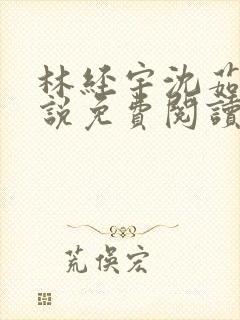 林経宇沈茹
說免費閱讀
荒俁宏